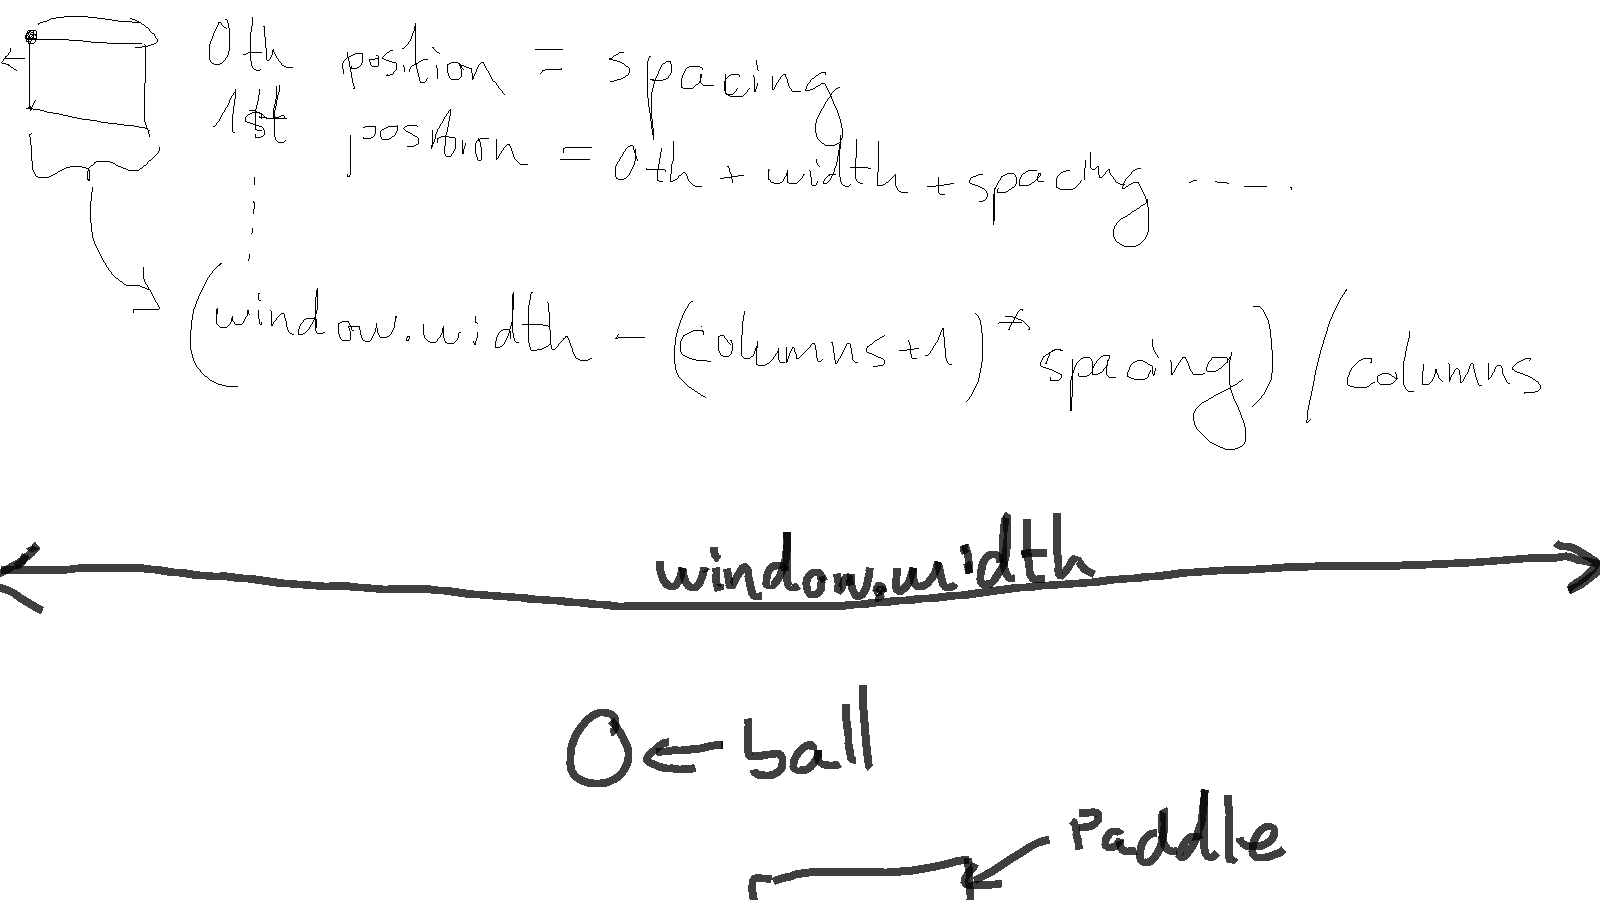 0th position = spacing
1st position = 0th + width + spacing -----.
(window.width - (columns+1)* spacing) / columns
window.width
ball
Paddle